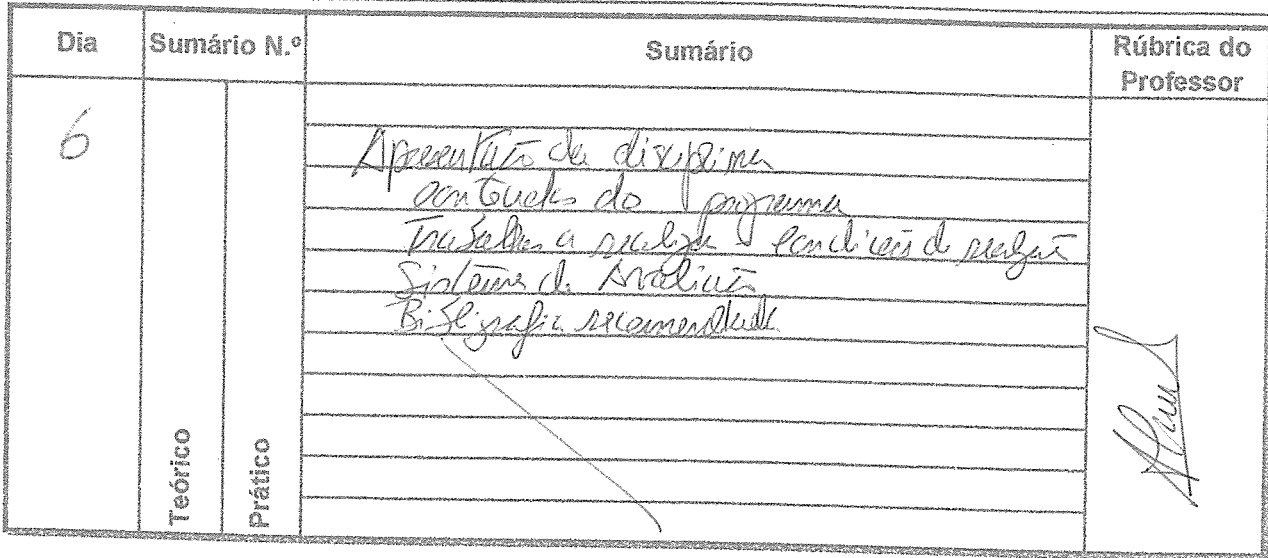 Dia
Sumário N.º
Sumário
Rúbrica do
Professor
6
Apresentação da disciplina
conteudos do programa
Trabalhos a realizar e condições de realização
Sistema de Avaliação
Bibliografia recomendada
Teórico
Prático